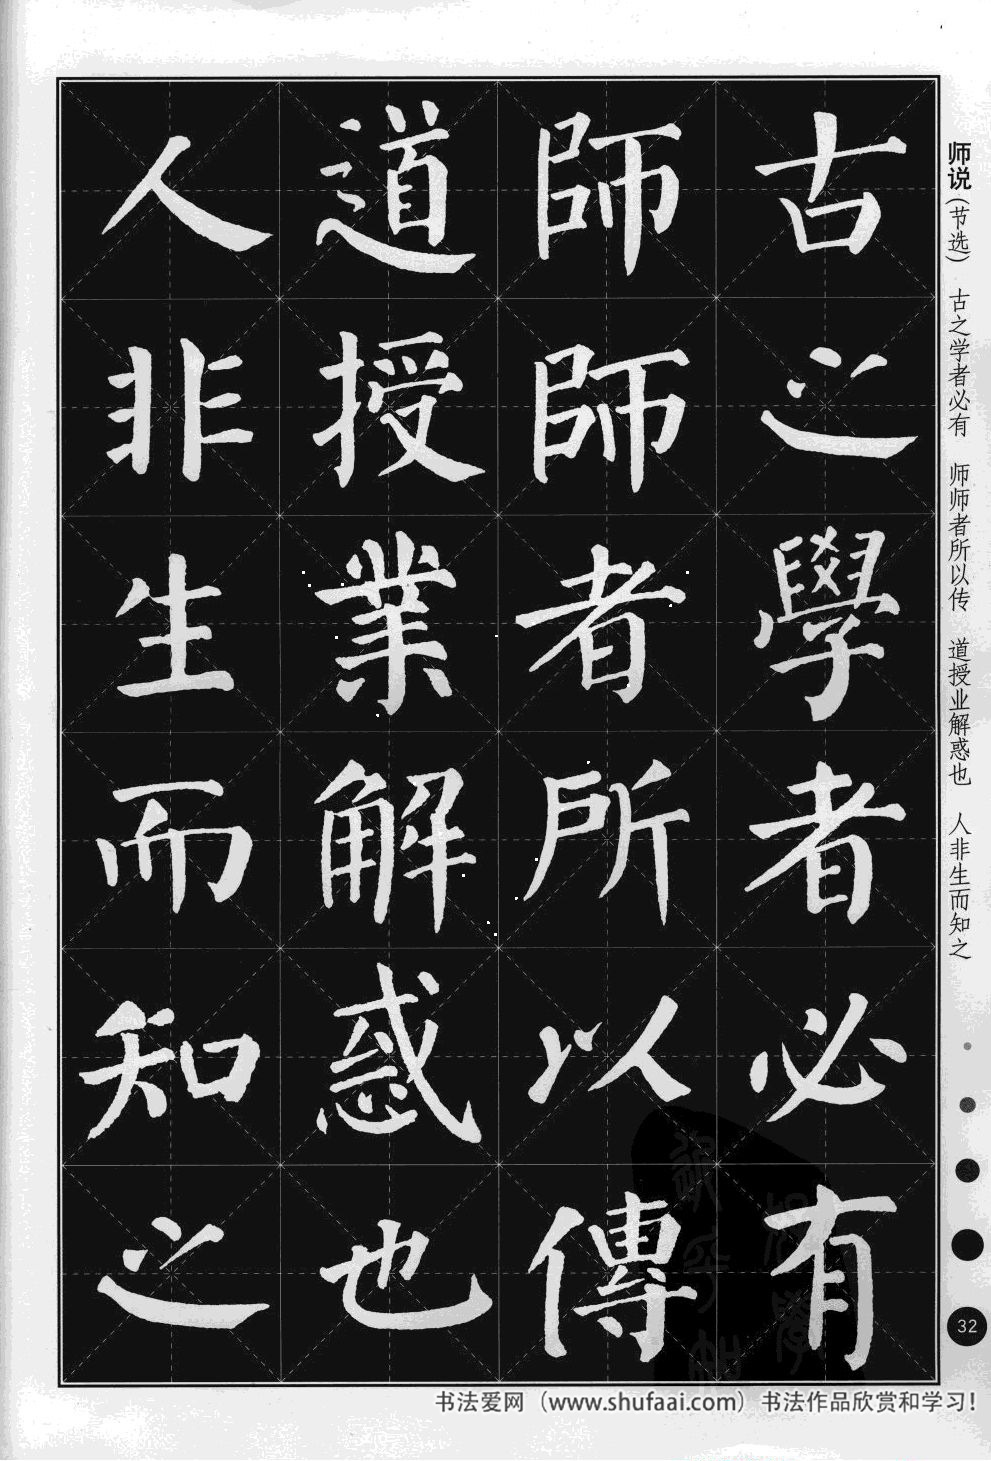 师说（节选） 古之学者必有 师师者所以传 道授业解惑也 人非生而知之
古之學者必有
師師者所以傳
道授業解惑也
人非生而知之
32
书法爱网（www.shufaai.com）书法作品欣赏和学习！